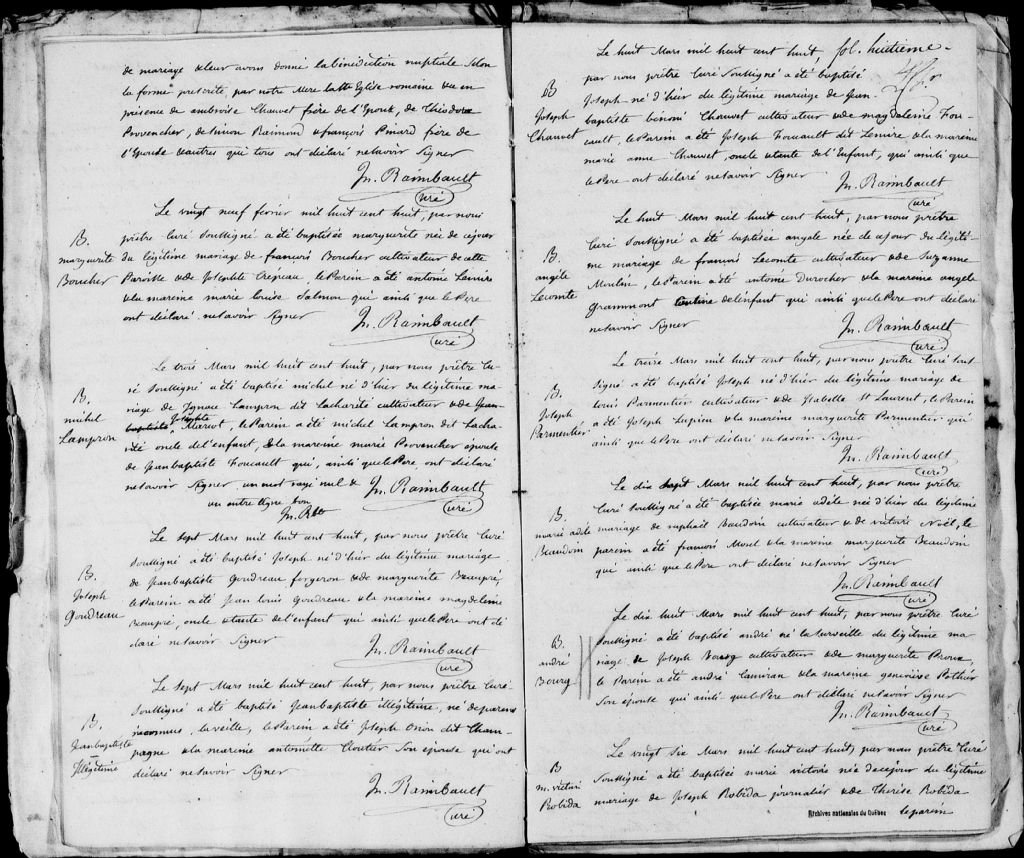 de mariage & leur avons donné la bénédiction nuptiale selon
la forme prescrite par notre Mere la Ste Eglise romaine & en
présence de ambroise Chauvet frère de l'Epoux, de Théodore
Provencher, de simon Raimond & françois Pinard frère de
l'Epouse & autres qui tous ont déclaré ne savoir signer
Jn. Raimbault
curé
Le vingt neuf fevrier mil huit cent huit, par nous
B.
marguerite
Boucher
prêtre Curé soussigné a été baptisée marguerite née de ce jour
du légitime mariage de françois Boucher cultivateur de cette
Paroisse & de Josephte le parein a été antoine Lemire
& la mareine marie Louise Salmon qui ainsi que le Pere
ont déclaré ne savoir signer
Jn. Raimbault
curé
Le trois Mars mil huit cent huit, par nous prêtre Cu-
B.
michel
Lampron
ré soussigné a été baptisé michel né d'hier du légitime ma-
riage de Ignace Lampron dit Lacharité cultivateur & de Jean
baptiste Josephte Marcot, le Parein a été michel Lampron dit Lacha-
rité oncle de l'enfant, & la mareine marie Provencher épouse
de Jeanbaptiste Foucault qui, ainsi que le Pere ont déclaré
ne savoir signer un mot rayé nul &
un entre ligne bon
Jn. Rbt
Jn. Raimbault
curé
Le sept Mars mil huit cent huit, par nous prêtre Curé
B.
Joseph
Goudreau
soussigné a été baptisé Joseph né d'hier du légitime mariage
de Jeanbaptiste Goudreau forgeron & de marguerite Beaupré,
le Parein a été Jean Louis Goudreau & la mareine magdeleine
Beaupré, oncle & tante de l'enfant qui ainsi que le Pere ont dé
claré ne savoir signer
Jn. Raimbault
curé
Le sept Mars mil huit cent huit, par nous prêtre Curé
B.
Jeanbaptiste
Illégitime
soussigné a été baptisé Jeanbaptiste illégitime, né de parens
inconnus, la veille, le Parein a été Joseph Orion dit Cham-
pagne & la mareine antoinette Cloutier son epouse qui ont
déclaré ne savoir signer
Jn. Raimbault
curé
fol. huitieme
Le huit Mars mil huit cent huit
B
Joseph
Chauvet
par nous prêtre Curé soussigné a été baptisé
Joseph né d'hier du légitime mariage de Jean
baptiste benoni Chauvet cultivateur & de magdeleine Fou-
cault, le Parein a été Joseph Foucault dit Lemire & la mareine
marie anne Chauvet, oncle & tante de l'Enfant, qui ainsi que
le Pere ont déclaré ne savoir signer
Jn. Raimbault
curé
Le huit Mars mil huit cent huit, par nous prêtre
B.
angéle
Lecomte
Curé soussigné a été baptisée angele née de ce jour du légiti-
me mariage de françois Lecomte cultivateur & de Suzanne
Moulin, le Parein a été antoine Durocher & la mareine angele
Grammont de l'enfant qui ainsi que le Pere ont déclaré
ne savoir signer
Jn. Raimbault
curé
Le treize Mars mil huit cent huit, par nous prêtre Curé sous
B.
Joseph
Parmentier
signé a été baptisé Joseph né d'hier du légitime mariage de
Louis Parmentier cultivateur & de Isabelle St Laurent, le Parein
a été Joseph Lupien & la mareine marguerite Parmentier qui
ainsi que le Pere ont déclaré ne savoir signer
Jn. Raimbault
curé
Le dix sept Mars mil huit cent huit, par nous prêtre
B.
marie adèle
Beaudoin
Curé soussigné a été baptisée marie adèle née d'hier du légitime
mariage de raphaël Baudoin cultivateur & de victoire Noël, le
parein a été françois Morel & la mareine marguerite Beaudoin
qui ainsi que le Pere ont déclaré ne savoir signer
Jn. Raimbault
curé
Le dix huit Mars mil huit cent huit, par nous prêtre Curé
B.
andré
Bourg
soussigné a été baptisé andré né la surveille du légitime ma-
riage de Joseph Bourg cultivateur & de marguerite Proux,
le Parein a été andré & la mareine geneviève Pothier
son épouse qui ainsi que le Pere ont déclaré ne savoir signer
Jn. Raimbault
curé
Le vingt six Mars mil huit cent huit, par nous prêtre Curé
B
m. victoire
Robida
soussigné a été baptisée marie victoire née de ce jour du légitime
mariage de Joseph Robida journalier & de Therèse Robida
le parein
Archives nationales du Québec